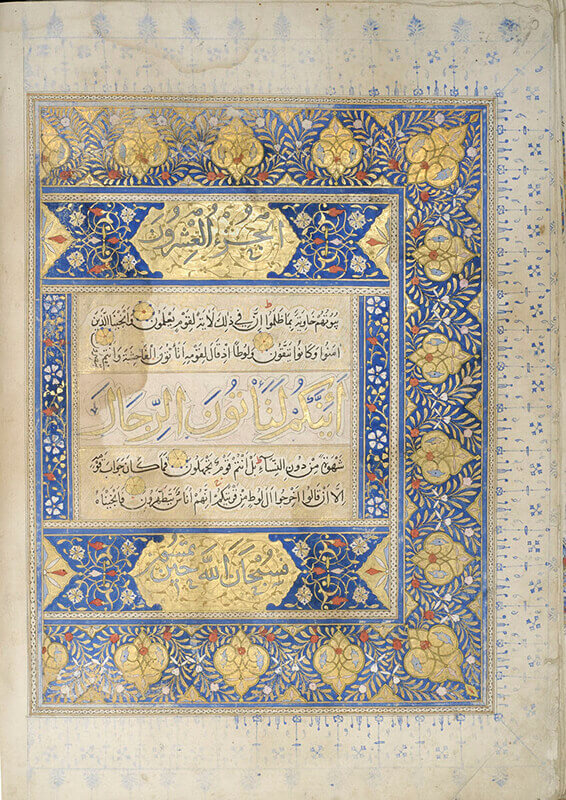 الجزء العشرون
بيوتهم خاوية بما ظلموا إن في ذلك لآية لقوم يعلمون وأنجينا الذين
آمنوا وكانوا يتقون ولوطا إذ قال لقومه أتأتون الفاحشة وأنتم
أئنكم لتأتون الرجال
شهوة من دون النساء بل أنتم قوم تجهلون فما كان جواب قومه
إلا أن قالوا أخرجوا آل لوط من قريتكم إنهم أناس يتطهرون فأنجيناه
فسبحان الله حين تمسون